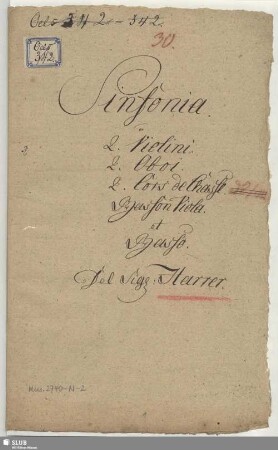 Cat: 342 - 342.
Cat:
342.
30.
Sinfonia.
2. Violini.
2. Oboi
2. Cors de Chasse
Basson Viola.
et
Basso.
Del Sigr. Harrer.
Mus. 2740-N-2
SLUB